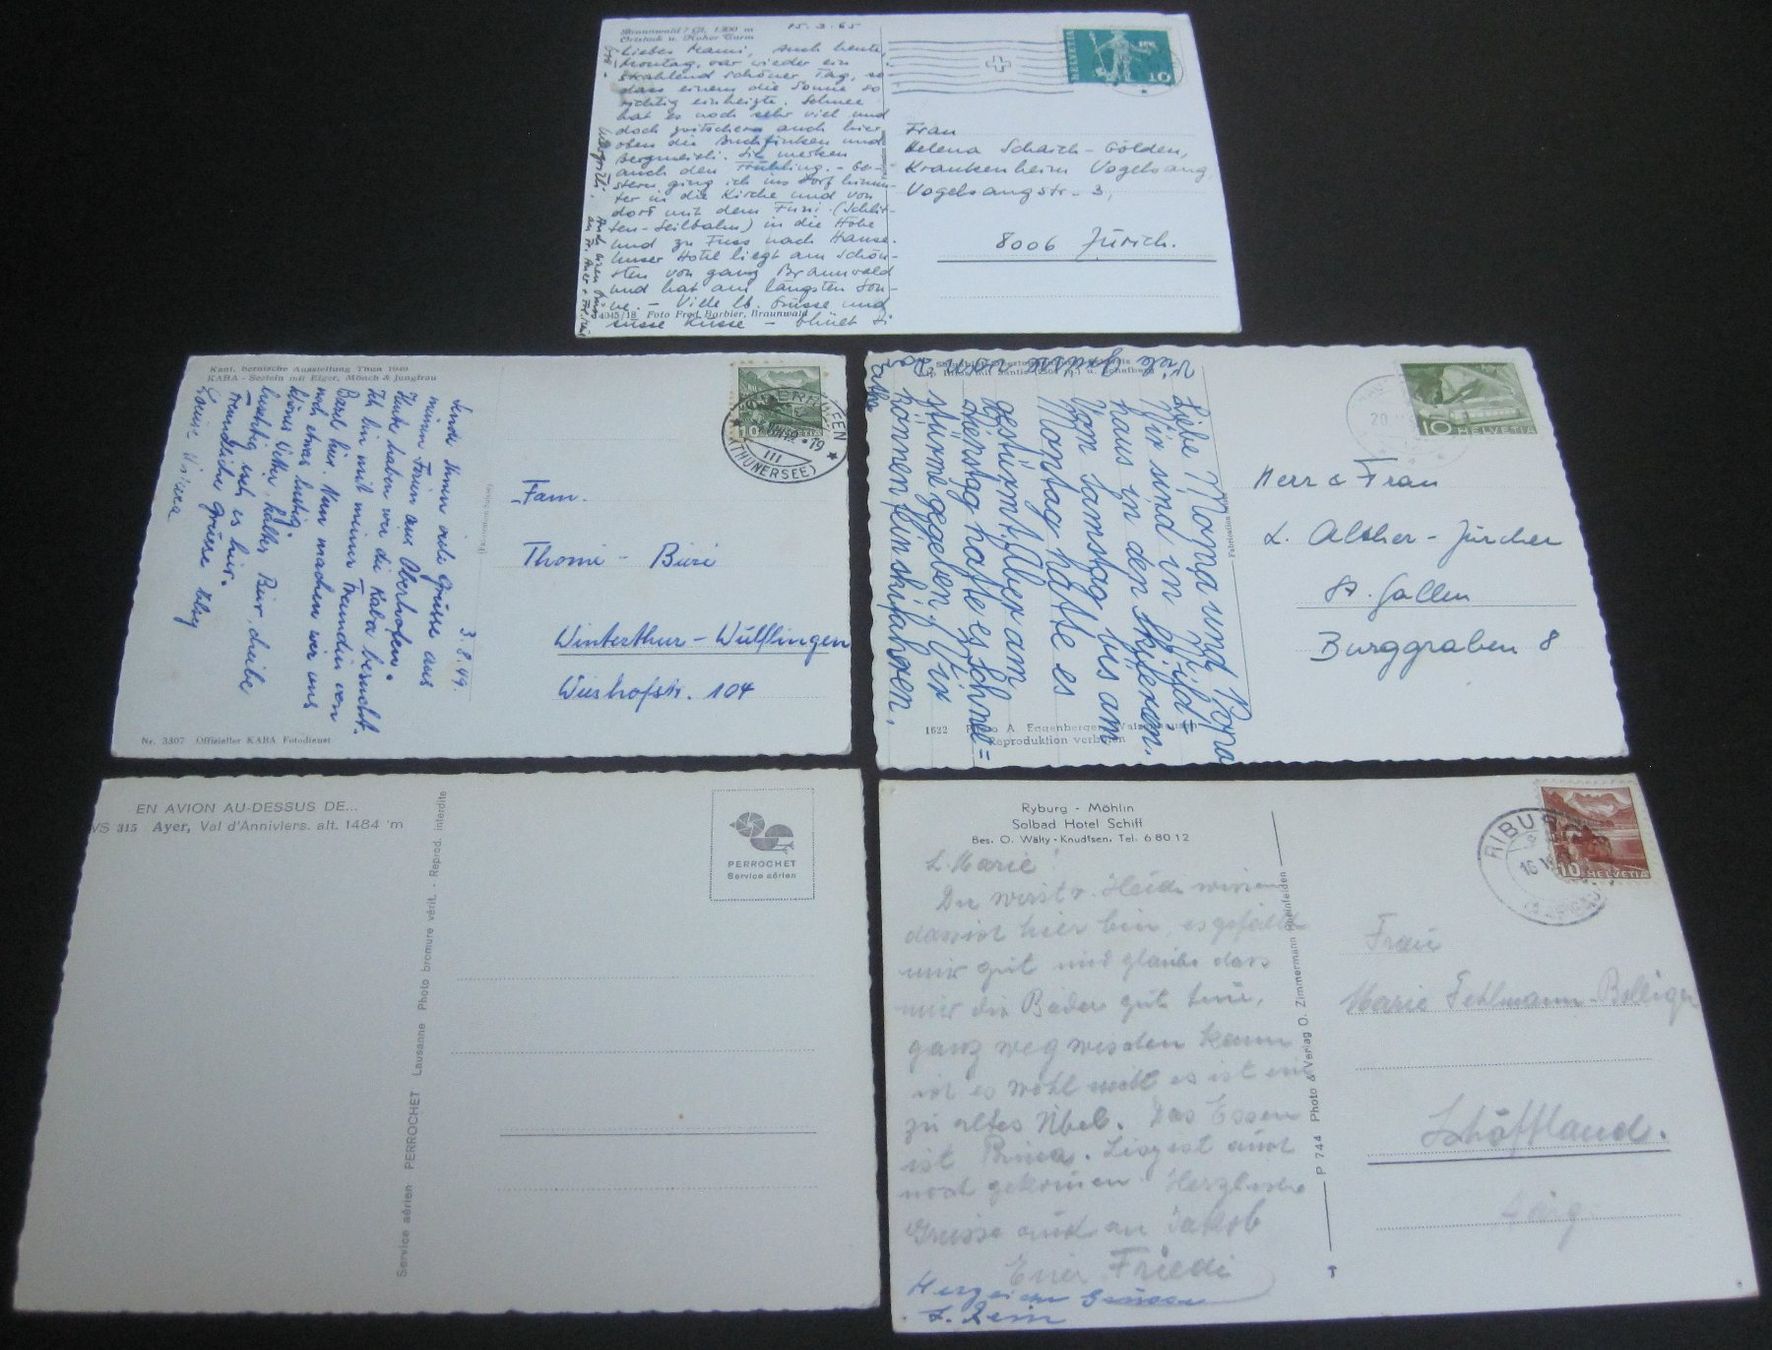 Braunwald / Gl. 1300 m
Ortstock u. Hoher Turm
15.3.65
Liebes Mami, auch heute,
Montag, war wieder ein
strahlend schöner Tag, so
dass einem die Sonne so
richtig einheizte. Schnee
hat es noch sehr viel und
doch zwitschern auch hier
oben die Buchfinken und
Bergmeisli. Sie merken
auch den Frühling. - Ge-
stern ging ich ins Dorf hinun-
ter in die Kirche und von
dort mit dem Funi (Schlit-
ten-Seilbahn) in die Höhe
und zu Fuss nach Hause.
Unser Hotel liegt am schön-
sten von ganz Braunwald
und hat am längsten Son-
ne. - Viele lb. Grüsse und
süsse Küsse - bhüet Di
4045/18 Foto Fred Barbier, Braunwald
HELVETIA
10
Frau
Helena Schaich-Gölden,
Krankenheim Vogelsang
Vogelsangstr. 3,
8006 Zürich.
Kant. bernische Ausstellung Thun 1949
KABA - Seelein mit Eiger, Mönch & Jungfrau
3.8.49.
Sende Ihnen viele Grüsse aus
meinen Ferien aus Oberhofen.
Heute haben wir die Kaba besucht.
Ich bin mit meiner Freundin von
Basel hier. Nun machen wir uns
noch etwas lustig.
Freundliche Grüsse Elly
Nr. 3307 Offizieller KABA Fotodienst
OBERHOFEN
(THUNERSEE)
10
Fam.
Thomi - Bieri
Winterthur-Wülflingen
Wieshofstr. 104
Liebe Mama und Papa
Wir sind in Wild=
haus in den Skiferien.
Vom Samstag bis am
Montag hatte es
gestürmt. Aber am
Dienstag hatte es Schnee=
stürme gegeben. Wir
können fein skifahren.
Viele Grüsse von
1622 Photo A. Eggenberger
Reproduktion verboten
10 HELVETIA
Herr & Frau
L. Alther-Zürcher
St. Gallen
Burggraben 8
EN AVION AU-DESSUS DE...
VS 315 Ayer, Val d'Anniviers. alt. 1484 m
Service aérien PERROCHET Lausanne Photo bromure vérit. - Reprod. interdite
PERROCHET
Service aérien
Ryburg - Möhlin
Solbad Hotel Schiff
Bes. O. Wälty-Knudtsen. Tel. 6 80 12
L. Marie!
Du wirst v. Heidi wissen
dass ich hier bin, es gefällt
mir gut und glaube dass
mir die Bäder gut tun,
ganz weg werden kann
ich es wohl nicht es ist ein
zu altes Übel. Das Essen
ist Prima. Liegest auch
noch gekommen. Herzliche
Grüsse auch an Jakob
Eure Friedi
P 744 Photo & Verlag O. Zimmermann Rheinfelden
RIBURG
10 HELVETIA
Frau
Marie Fehlmann-Bolliger
Schöftland.
Aarg.